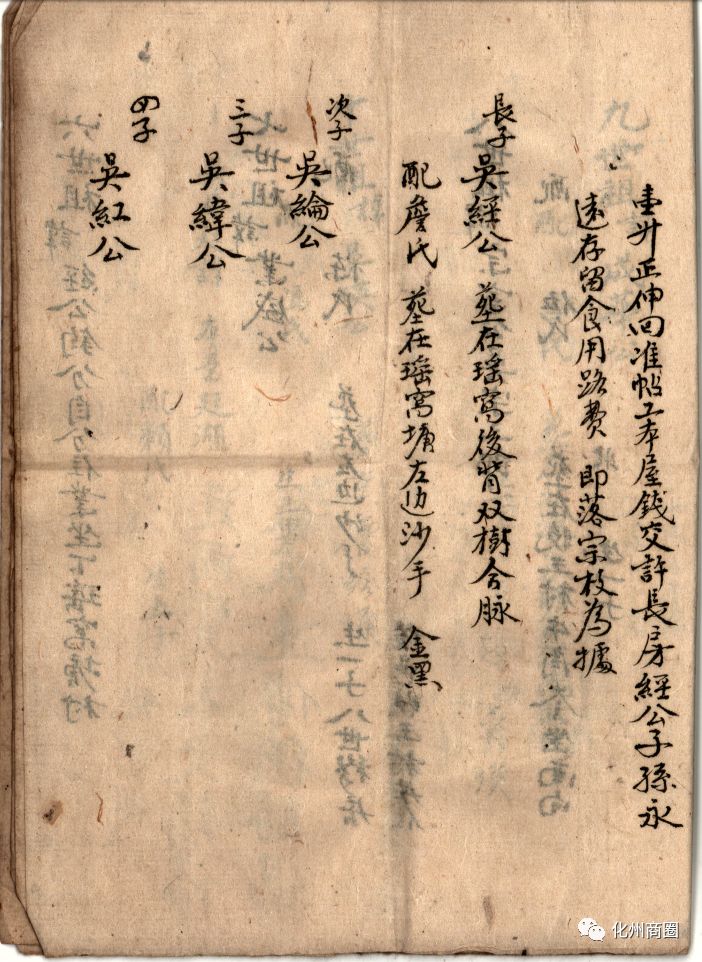 壹升正伸回准帖工本屋錢交許長房經公子孫永
遠存留食用路費 即落宗枝為據
長子 吳經公 塟在瑶窩後背双樹合脉
配詹氏 塟在瑶窩塘左边沙手 金黑
次子 吳綸公
三子 吳緯公
四子 吳紅公
化州商圈